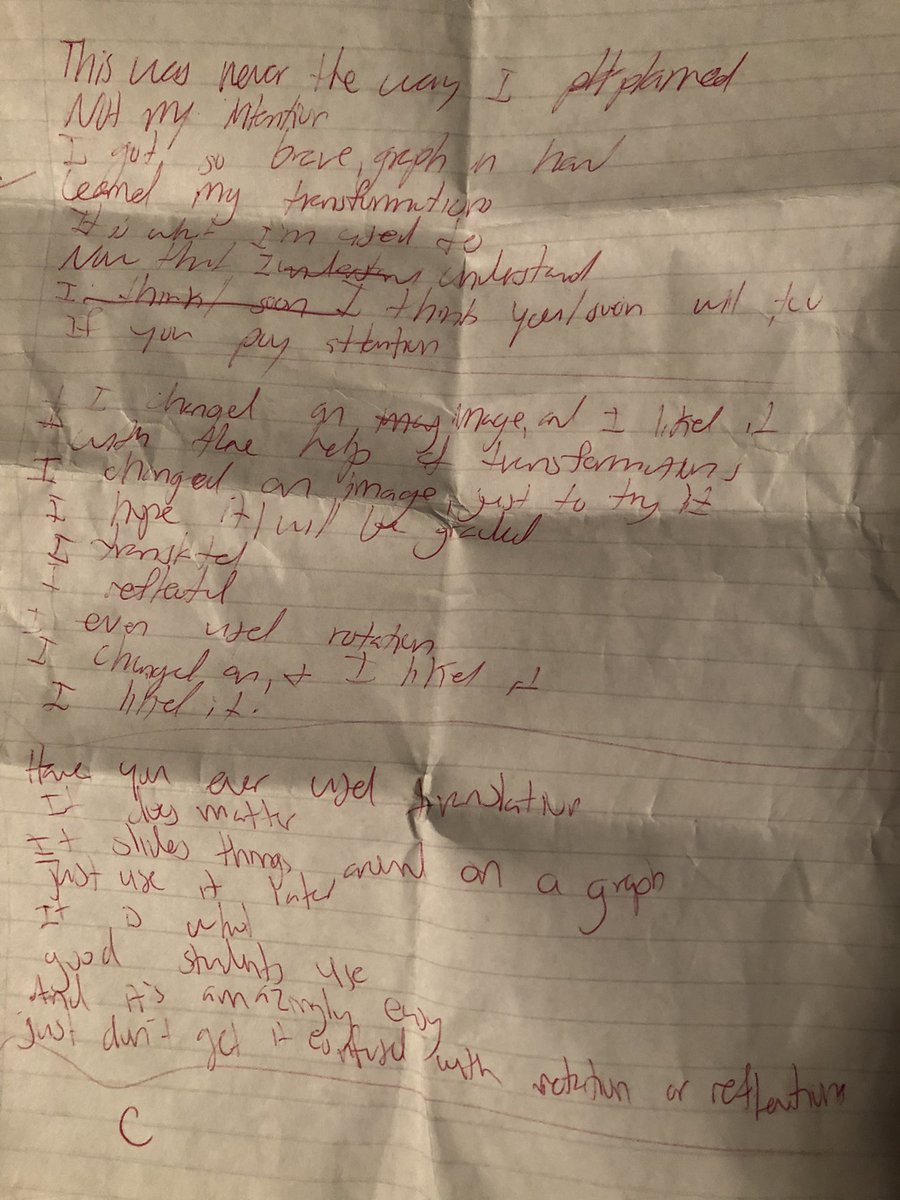 This was never the way I planned
Not my intention
I got so brave, graph in hand
learned my transformations
It is what I'm used to
Now that I understand
I think you/soon will too
If you pay attention
I changed an image, and I liked it
with the help of transformations
I changed an image, just to try it
I hope it/will be graded
I translated
I reflected
I even used rotation
I changed an, + I liked it
I liked it.
Have you ever used translation
It does matter
It slides things around on a graph
Just use it later
It is what
good students use
And it's amazingly easy
just don't get it confused with rotation or reflections
C